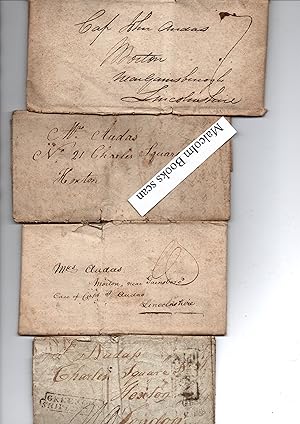 Cap John Audas
7
Morton
near Gainsborough
Lincolnshire
Mrs Audas
No 21 Charles Square
Hoxton
Malcolm Books scan
Mrs Audas
Morton, near Gainsboro'
Care of Capt Audas
Lincolnshire
Audas
Charles Square
Hoxton
London